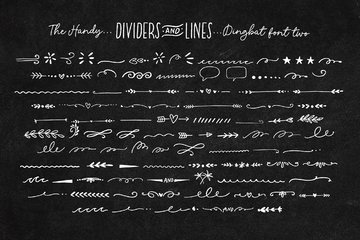 The Handy... DIVIDERS AND LINES ...Dingbat font two